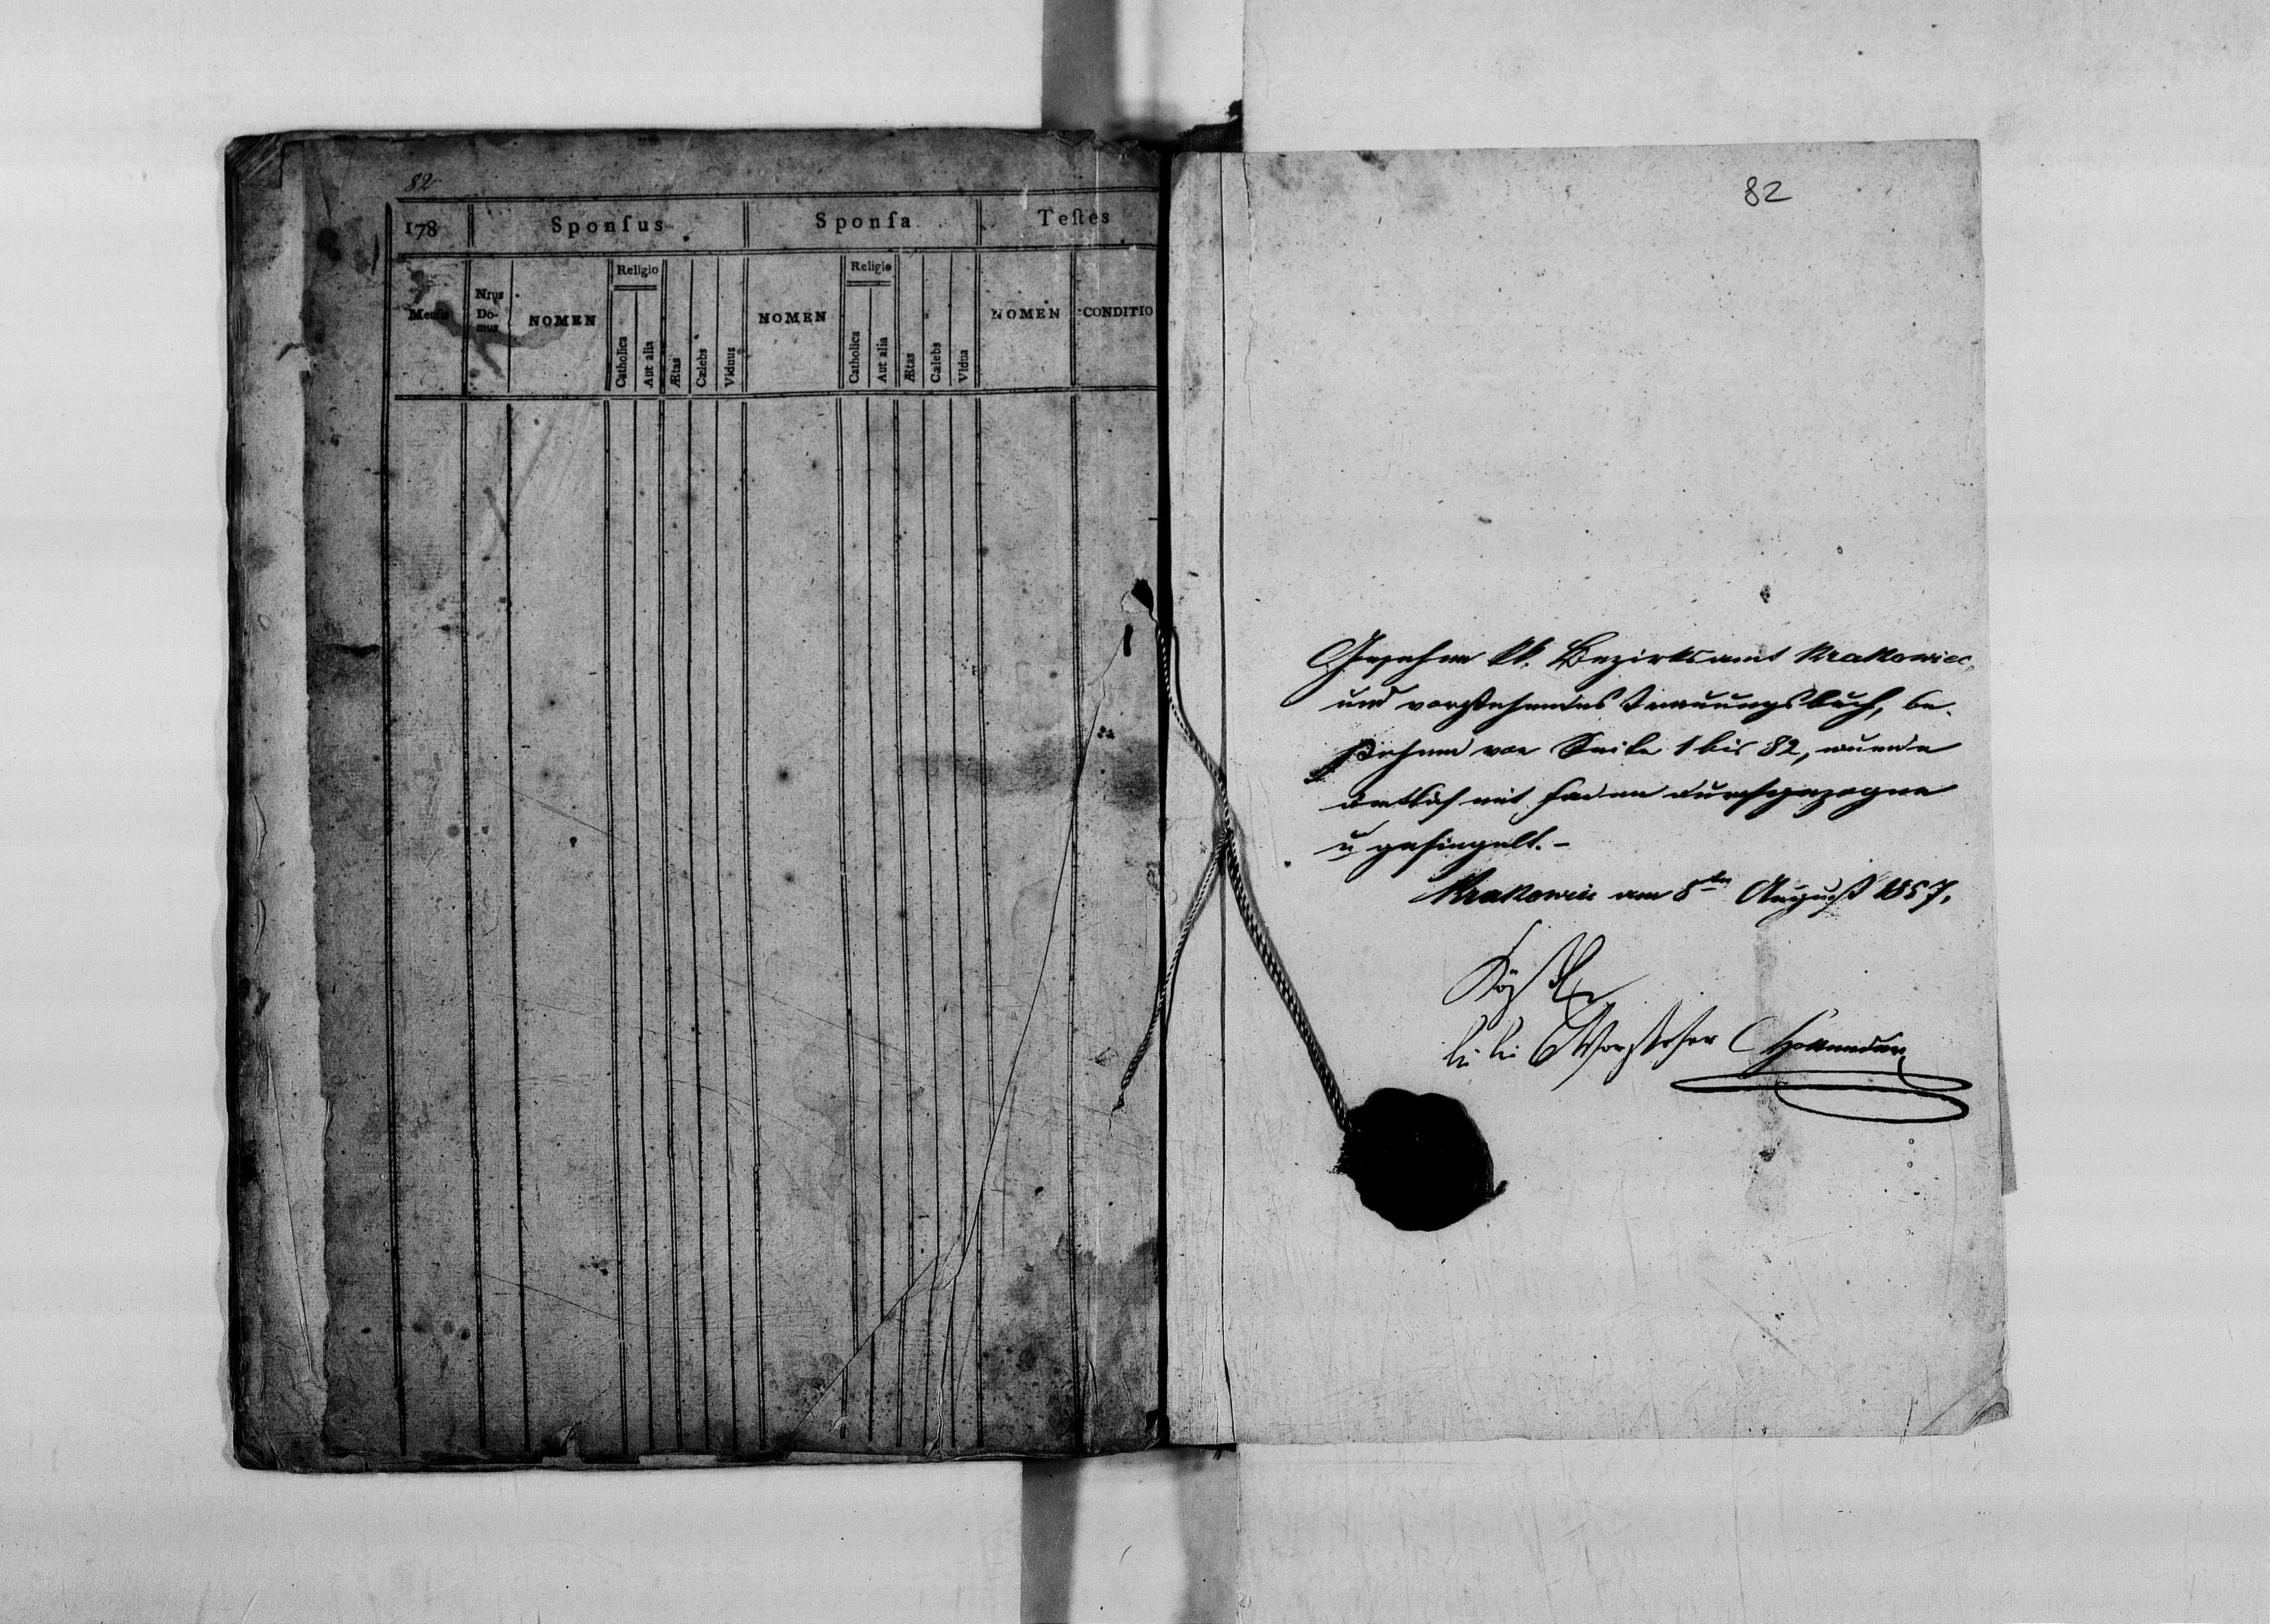 82
178 Sponſus Sponſa Teſtes
Menſis Nrus Do-mus NOMEN Religio Catholica Aut alia Ætas Cælebs Viduus NOMEN Religio Catholica Aut alia Ætas Cælebs Vidua NOMEN CONDITIO
82
Gesehen kk. Bezirksamt Krakowiec,
und vorstehendes Trauungsbuch, be-
stehend von Seite 1 bis 82, wurde
ämtlich mit Faden durchgezogen
u gesiegelt.-
Krakowiec am 8ten August 1857.
Vorsteher